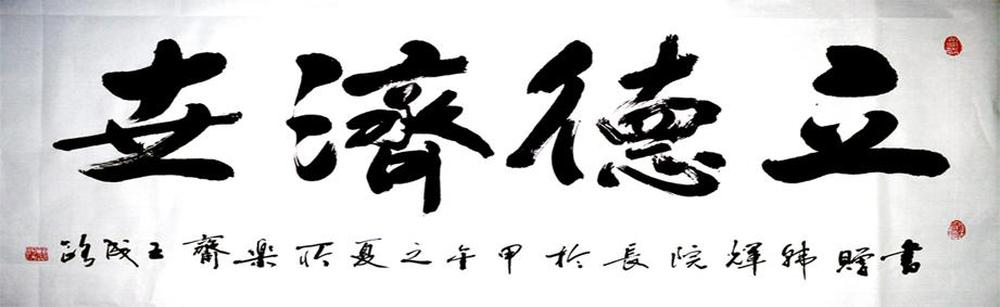 立德濟世
書贈韩輝院長於甲午之夏所樂齋王成路